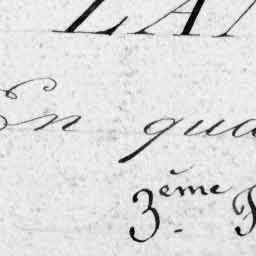 LA
En qua
3ème